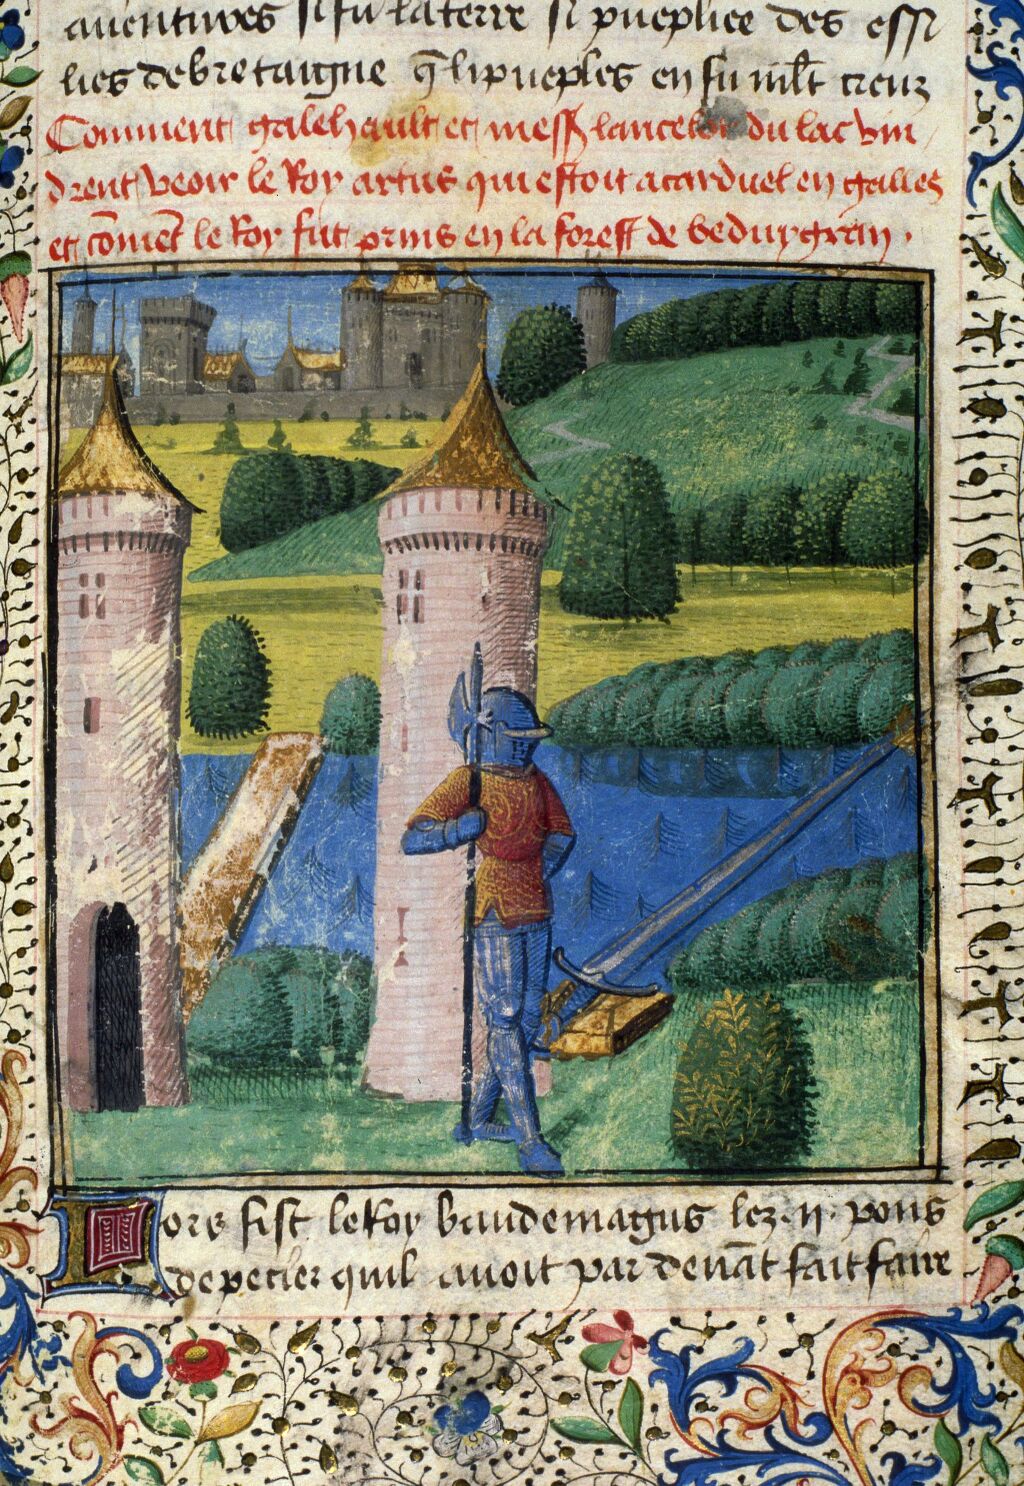 auentures si fu la terre si pueplee des essi
lies de bretaigne q̃ li pueples en fu mlt̃ creuz
Comment galehault et mess lancelot du lac vin
drent veoir le Roy artus qui estoit a carduel en galles
et cõmẽt le Roy fut prins en la forest de bedingran .
Lors fist le Roy baudemagus lez .ii. pons
depecier quil auoit par deuãt fait faire